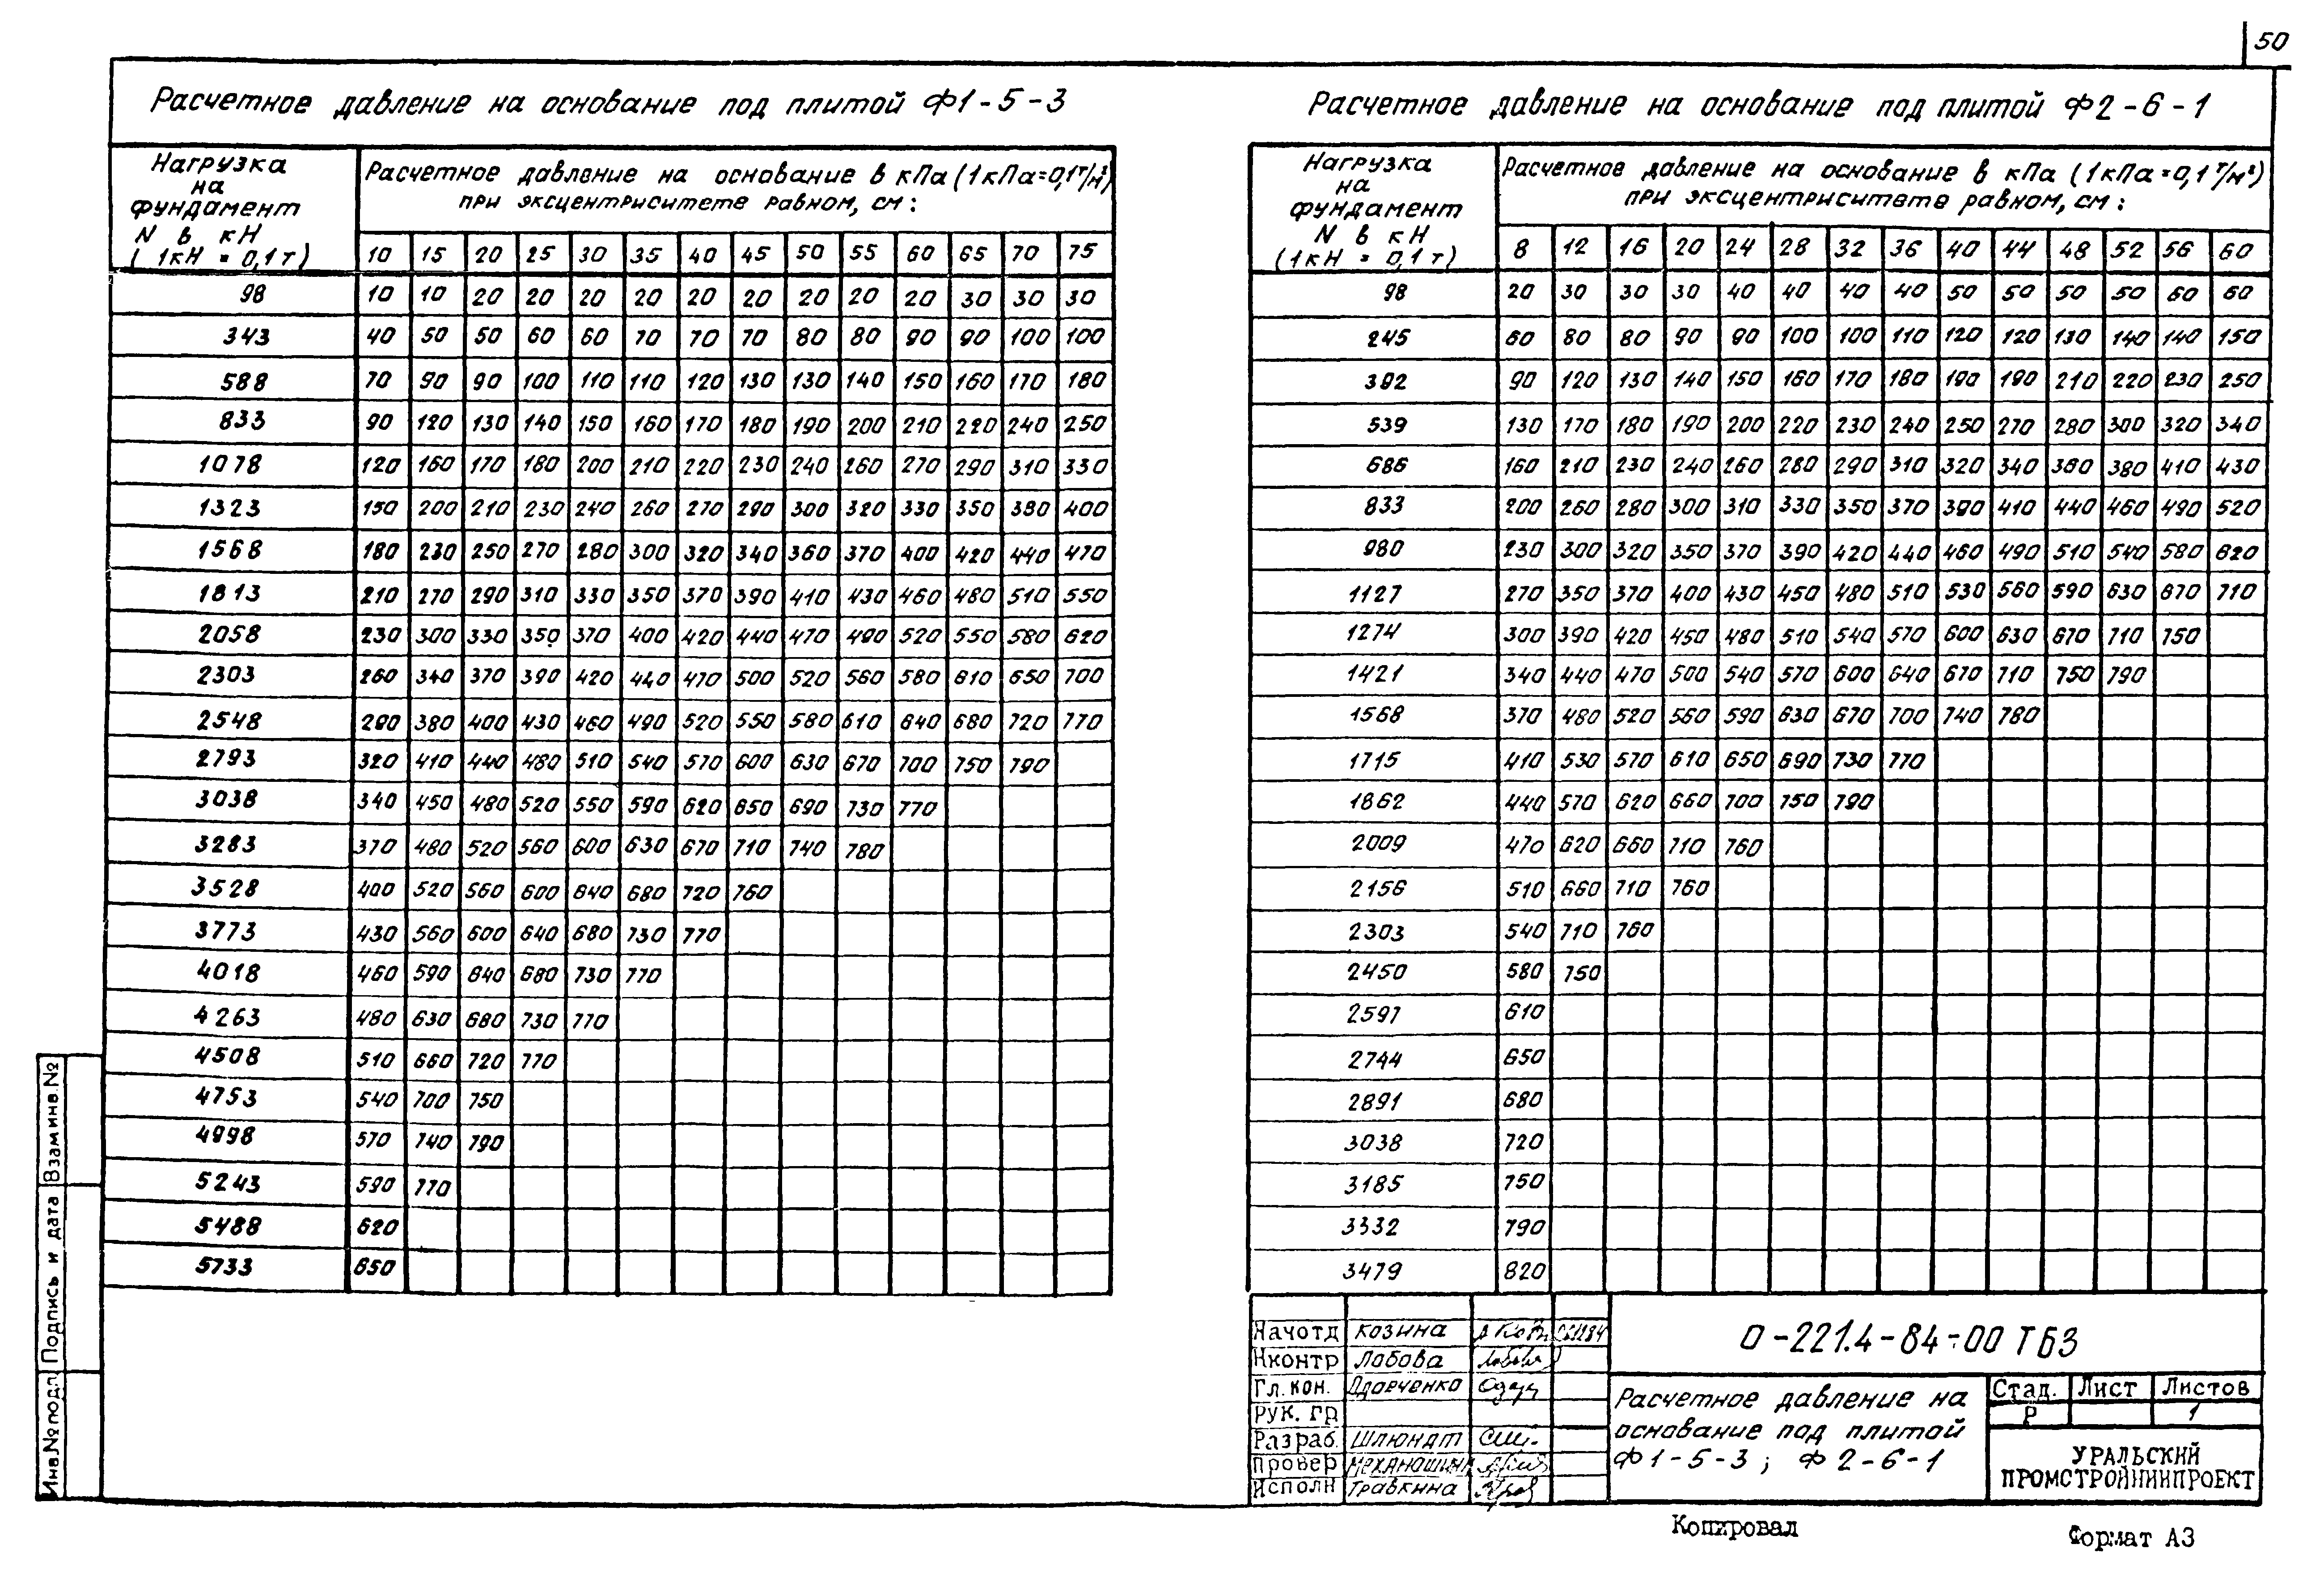 50
Расчетное давление на основание под плитой Ф1-5-3
Нагрузка на фундамент N в кН (1кН = 0,1т)
Расчетное давление на основание в кПа (1кПа=0,1т/м²)
при эксцентриситете равном, см:
10 15 20 25 30 35 40 45 50 55 60 65 70 75
98 10 10 20 20 20 20 20 20 20 20 20 30 30 30
343 40 50 50 60 60 70 70 70 80 80 90 90 100 100
588 70 90 90 100 110 110 120 130 130 140 150 160 170 180
833 90 120 130 140 150 160 170 180 190 200 210 220 240 250
1078 120 160 170 180 200 210 220 230 240 260 270 290 310 330
1323 150 200 210 230 240 260 270 290 300 320 330 350 380 400
1568 180 230 250 270 280 300 320 340 360 370 400 420 440 470
1813 210 270 290 310 330 350 370 390 410 430 460 480 510 550
2058 230 300 330 350 370 400 420 440 470 490 520 550 580 620
2303 260 340 370 390 420 440 470 500 520 560 580 610 650 700
2548 290 380 400 430 460 490 520 550 580 610 640 680 720 770
2793 320 410 440 480 510 540 570 600 630 670 700 750 790
3038 340 450 480 520 550 590 620 650 690 730 770
3283 370 480 520 560 600 630 670 710 740 780
3528 400 520 560 600 640 680 720 760
3773 430 560 600 640 680 730 770
4018 460 590 640 680 730 770
4263 480 630 680 730 770
4508 510 660 720 770
4753 540 700 750
4998 570 740 790
5243 590 770
5488 620
5733 650
Расчетное давление на основание под плитой Ф2-6-1
Нагрузка на фундамент N в кН (1кН = 0,1т)
Расчетное давление на основание в кПа (1кПа=0,1т/м²)
при эксцентриситете равном, см:
8 12 16 20 24 28 32 36 40 44 48 52 56 60
98 20 30 30 30 40 40 40 40 50 50 50 50 60 60
245 60 80 80 90 90 100 100 110 120 120 130 140 140 150
392 90 120 130 140 150 160 170 180 190 190 210 220 230 250
539 130 170 180 190 200 220 230 240 250 270 280 300 320 340
686 160 210 230 240 260 280 290 310 320 340 360 380 410 430
833 200 260 280 300 310 330 350 370 390 410 440 460 490 520
980 230 300 320 350 370 390 420 440 460 490 510 540 580 620
1127 270 350 370 400 430 450 480 510 530 560 590 630 670 710
1274 300 390 420 450 480 510 540 570 600 630 670 710 750
1421 340 440 470 500 540 570 600 640 670 710 750 790
1568 370 480 520 560 590 630 670 700 740 780
1715 410 530 570 610 650 690 730 770
1862 440 570 620 660 700 750 790
2009 470 620 660 710 760
2156 510 660 710 760
2303 540 710 760
2450 580 750
2597 610
2744 650
2891 680
3038 720
3185 750
3332 790
3479 820
Инв.№подл. Подпись и дата Взаминв.№
Начотд Козина
Нконтр Лобова
Гл.кон.
Рук. гр
Разраб. Шлюндт
Провер
Исполн Травкина
0-221.4-84-00 ТБ3
Расчетное давление на
основание под плитой
Ф1-5-3; Ф2-6-1
Стад. Лист Листов
Р 1
УРАЛЬСКИЙ
ПРОМСТРОЙНИИПРОЕКТ
Копировал
Формат А3